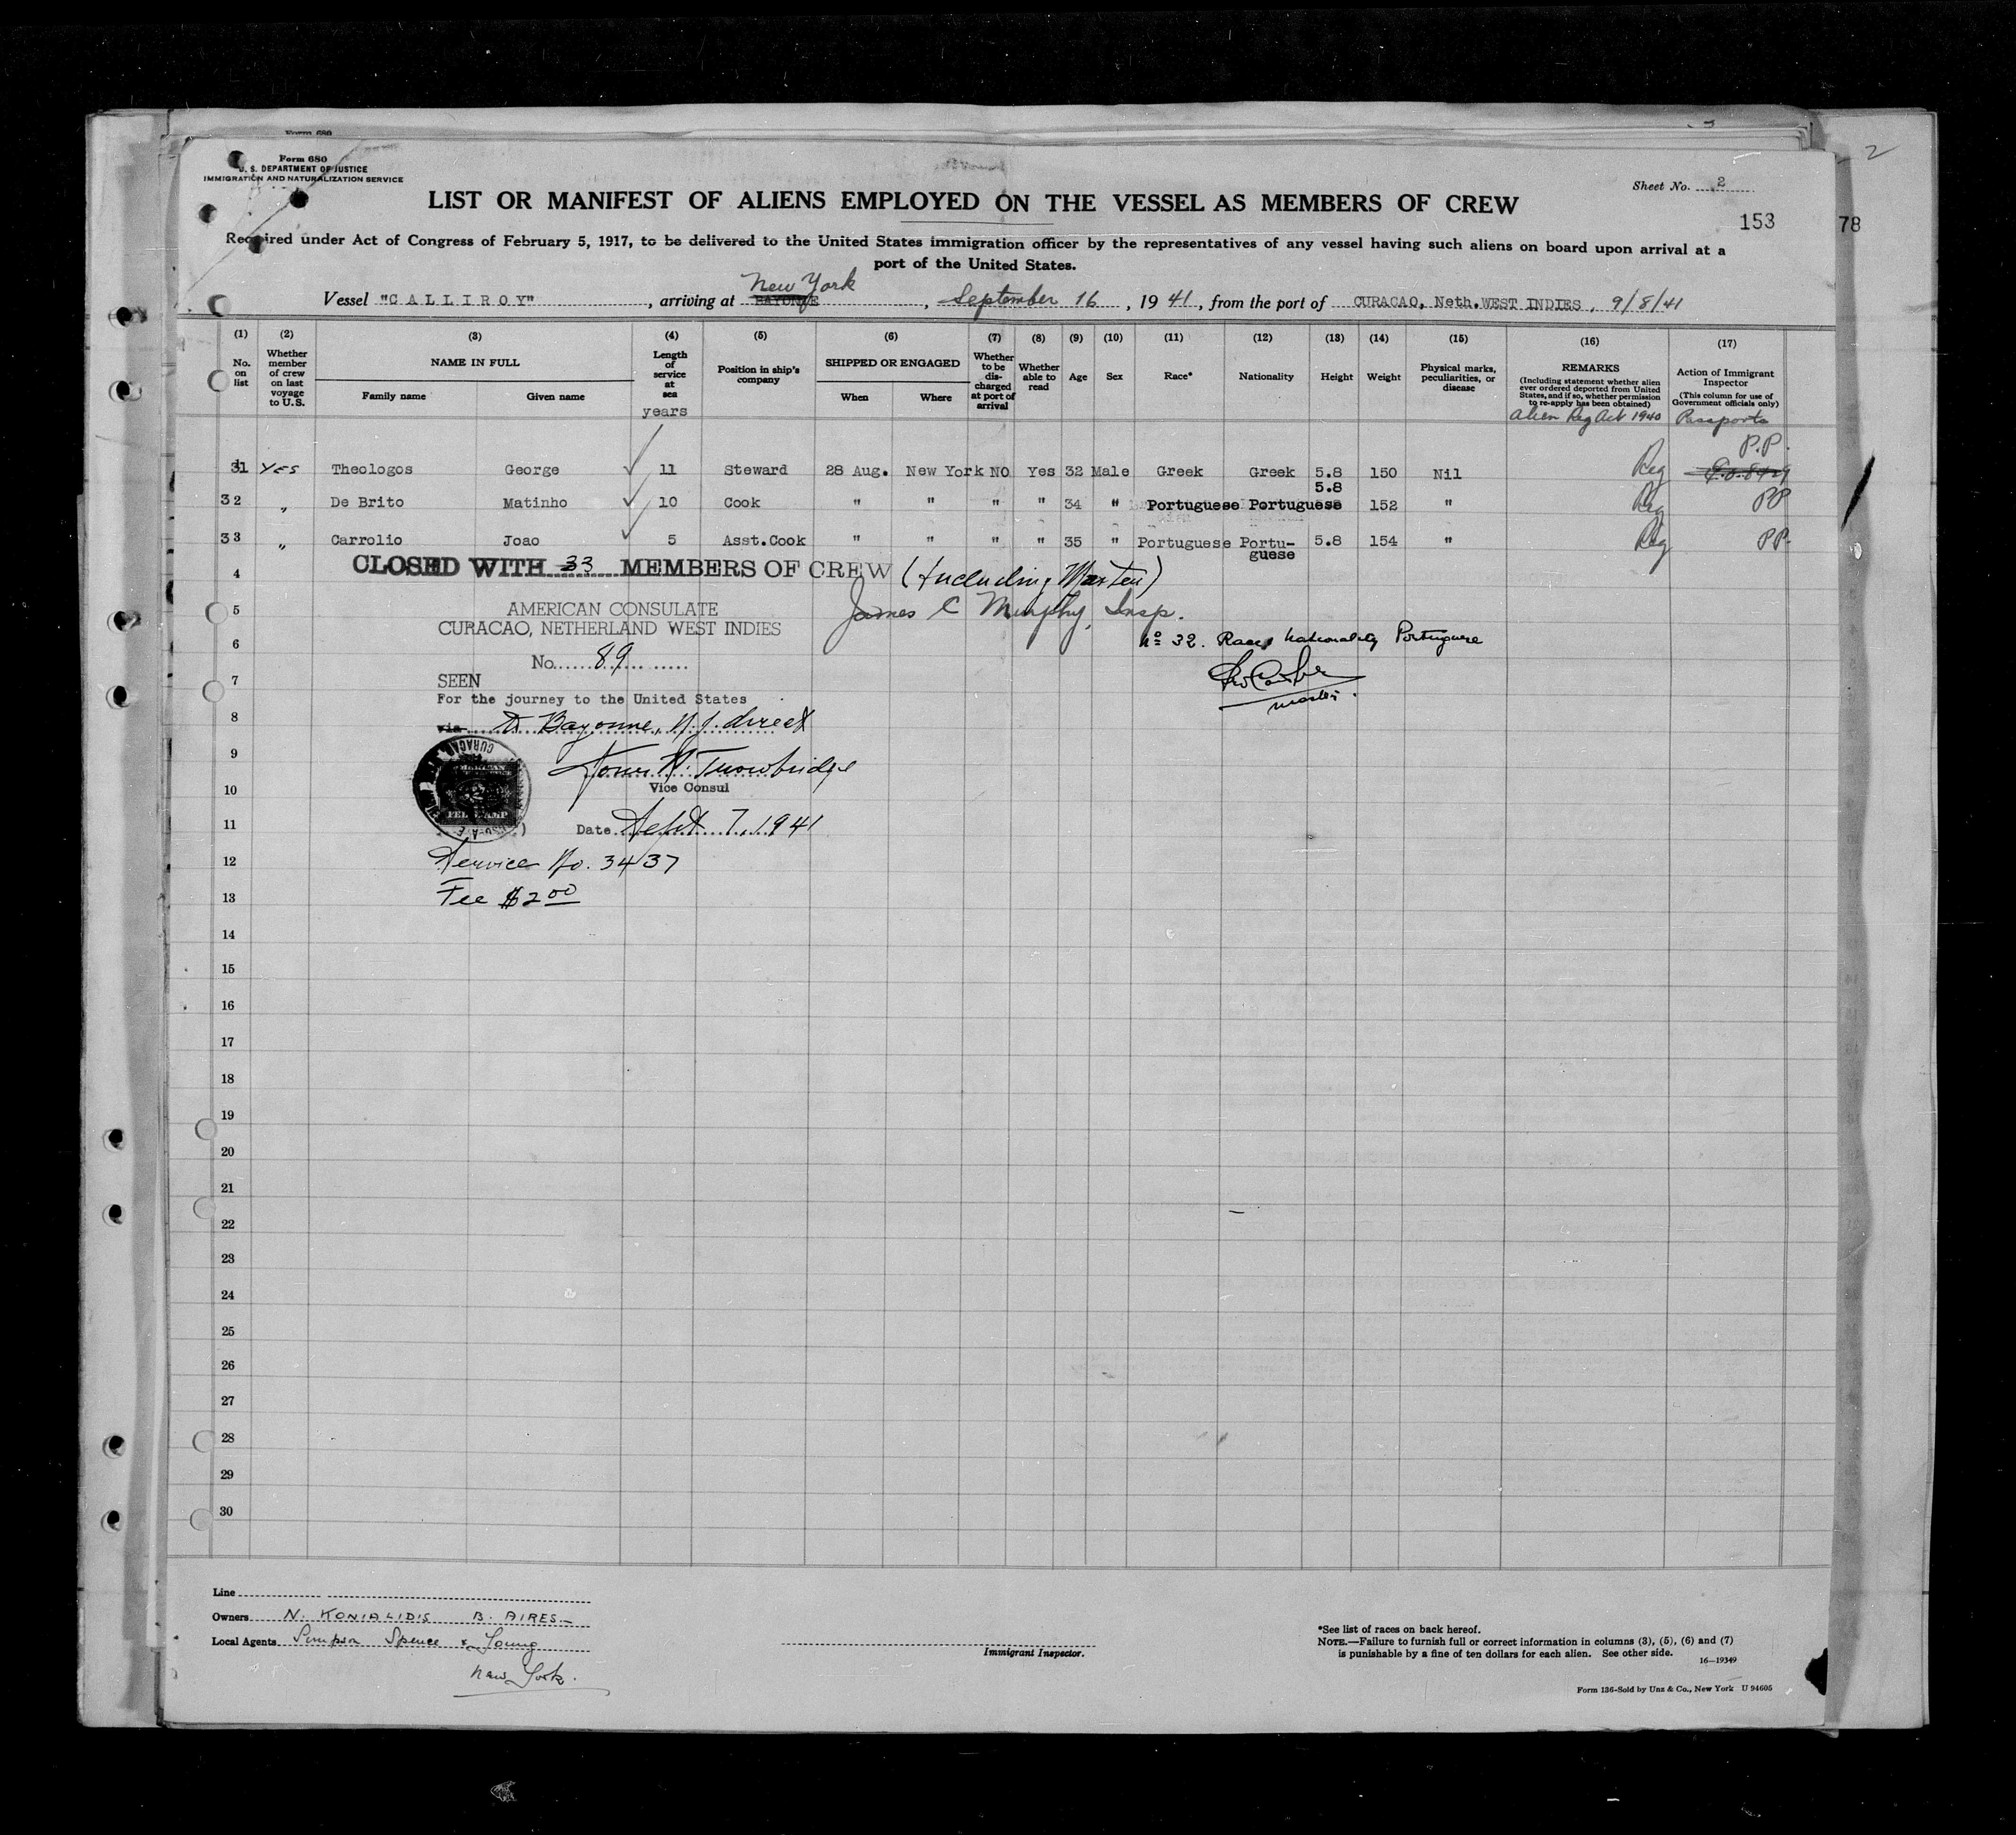 Form 680
Form 680
U. S. DEPARTMENT OF JUSTICE
IMMIGRATION AND NATURALIZATION SERVICE
2
Sheet No. 2
LIST OR MANIFEST OF ALIENS EMPLOYED ON THE VESSEL AS MEMBERS OF CREW
153
78
Required under Act of Congress of February 5, 1917, to be delivered to the United States immigration officer by the representatives of any vessel having such aliens on board upon arrival at a
port of the United States.
Vessel "CALLIROY", arriving at BAYONNE New York, September 16, 1941, from the port of CURACAO, Neth. WEST INDIES, 9/8/41
(1) (2) (3) (4) (5) (6) (7) (8) (9) (10) (11) (12) (13) (14) (15) (16) (17)
No. on list
Whether member of crew on last voyage to U.S.
NAME IN FULL
Family name
Given name
Length of service at sea
years
Position in ship's company
SHIPPED OR ENGAGED
When
Where
Whether to be discharged at port of arrival
Whether able to read
Age
Sex
Race*
Nationality
Height
Weight
Physical marks, peculiarities, or disease
REMARKS
(Including statement whether alien ever ordered deported from United States, and if so, whether permission to re-apply has been obtained)
Alien Reg Act 1940
Action of Immigrant Inspector
(This column for use of Government officials only)
Passports
P.P.
31 YES Theologos George 11 Steward 28 Aug. New York NO Yes 32 Male Greek Greek 5.8 150 Nil Reg
32 " De Brito Matinho 10 Cook " " " " 34 " Portuguese Portuguese 5.8 152 " Reg PP
33 " Carrolio Joao 5 Asst.Cook " " " " 35 " Portuguese Portu-guese 5.8 154 " Reg PP.
CLOSED WITH 33 MEMBERS OF CREW (Including Master)
4
AMERICAN CONSULATE
James C Murphy, Insp.
5
CURACAO, NETHERLAND WEST INDIES
No 32. Race, Nationality Portuguese
6
No. 89
master.
7
SEEN
For the journey to the United States
8
via to Bayonne, N.J. direct
9
Trowbridge
10
Vice Consul
11
Date Sept 7, 1941
12
Service No. 3437
13
Fee $2 00
14
15
16
17
18
19
20
21
22
23
24
25
26
27
28
29
30
Line
Owners N. KONIALIDIS B. AIRES
Local Agents Simpson Spence & Young
New York.
Immigrant Inspector.
*See list of races on back hereof.
NOTE.—Failure to furnish full or correct information in columns (3), (5), (6) and (7)
is punishable by a fine of ten dollars for each alien. See other side.
16—19349
Form 136-Sold by Unz & Co., New York U 94605